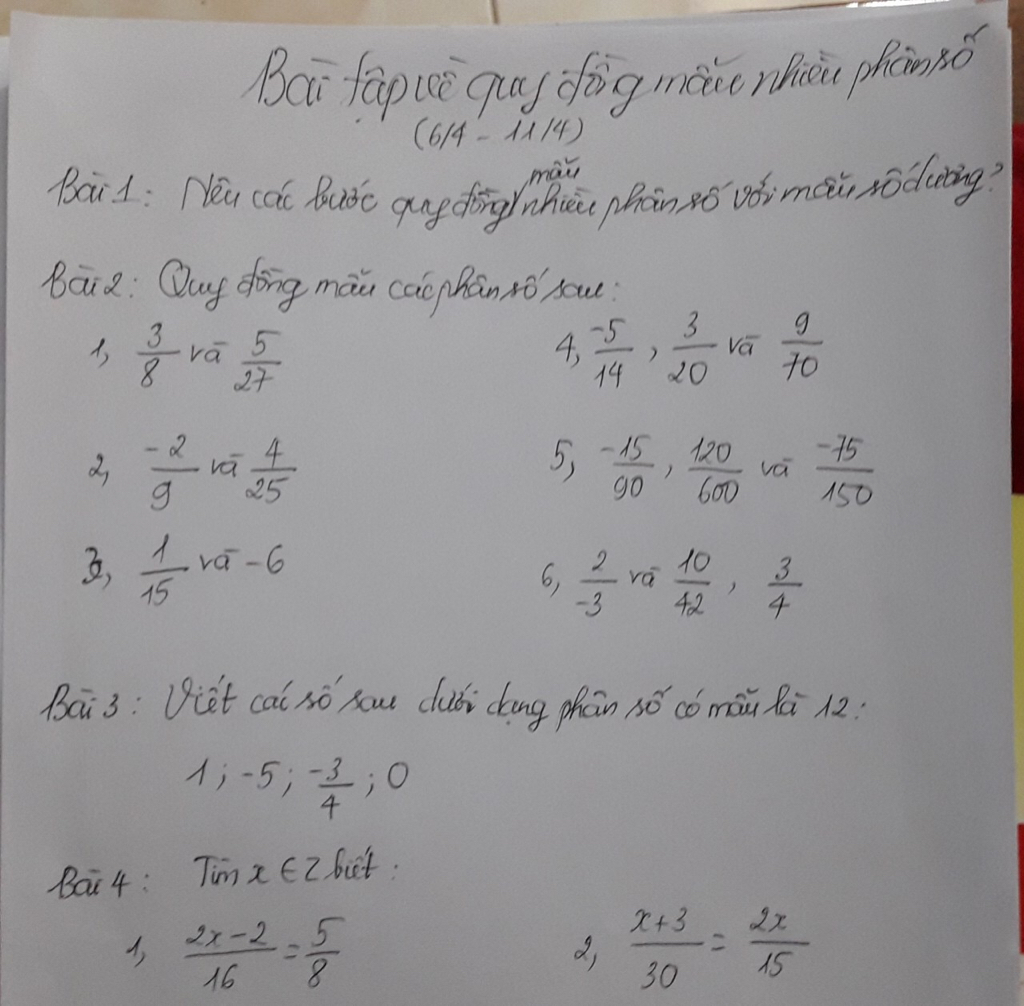 Bài tập về quy đồng mẫu nhiều phân số
(6/4 - 11/4)
Bài 1: Nêu các bước quy đồng mẫu nhiều phân số với mẫu số dương?
Bài 2: Quy đồng mẫu các phân số sau:
1, 3/8 và 5/27
4, -5/14, 3/20 và 9/70
2, -2/9 và 4/25
5, -15/90, 120/600 và -75/150
3, 1/15 và -6
6, 2/-3 và 10/42, 3/4
Bài 3: Viết các số sau dưới dạng phân số có mẫu là 12:
1; -5; -3/4; 0
Bài 4: Tìm x ∈ Z biết:
1, (2x-2)/16 = 5/8
2, (x+3)/30 = 2x/15